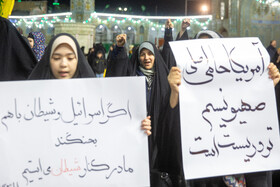 آمریکا حامی
صهیونیسم
تروریست است
اگر اسرائیل و شیطان با هم
بجنگند
ما در کنار شیطان می ایستیم